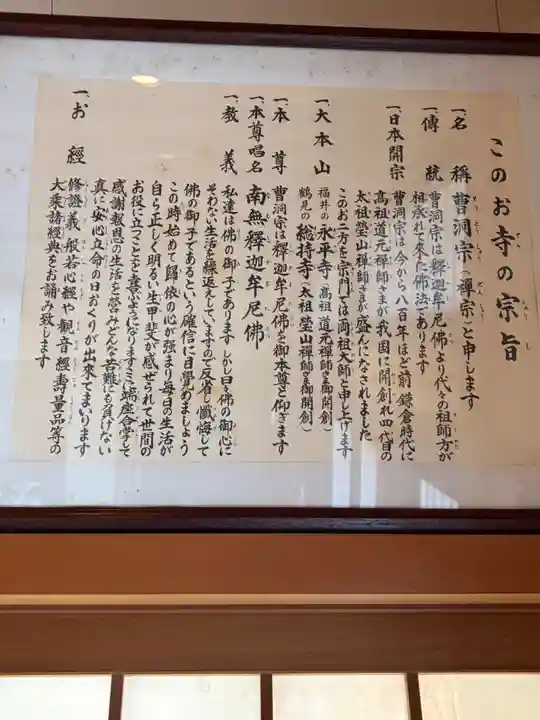 このお寺の宗旨
一、名稱 曹洞宗（禪宗）と申します
一、傳統 曹洞宗は釋迦牟尼佛より代々の祖師方が
相承れて来た佛法であります
一、日本開宗 曹洞宗は今から八百年ほど前鎌倉時代に
高祖道元禪師さまが我国に開創れ四代目の
太祖瑩山禪師さまが盛んになされました
このお二方を宗門では両祖大師と申し上げます
一、大本山 福井の永平寺（高祖道元禪師さま御開創）
鶴見の總持寺（太祖瑩山禪師さま御開創）
一、本尊 曹洞宗は釋迦牟尼佛を御本尊と仰ぎます
一、本尊唱名 南無釋迦牟尼佛
一、教義 私達は佛の御子であります しかし日々佛の御心に
そわない生活を繰返えしていますので反省し懺悔して
佛の御子であるという確信に目覺めましょう
この時始めて歸依の心が強まり毎日の生活が
自ら正しく明るい生甲斐が感ぜられて世間の
お役に立つことを喜ぶようになりますさらに端座合掌して
感謝報恩の生活を營みどんな苦難にも負けない
真に安心立命の日おくりが出來てまいります
一、お經 修證義 般若心經や觀音經 壽量品等の
大乘諸經典をお誦み致します